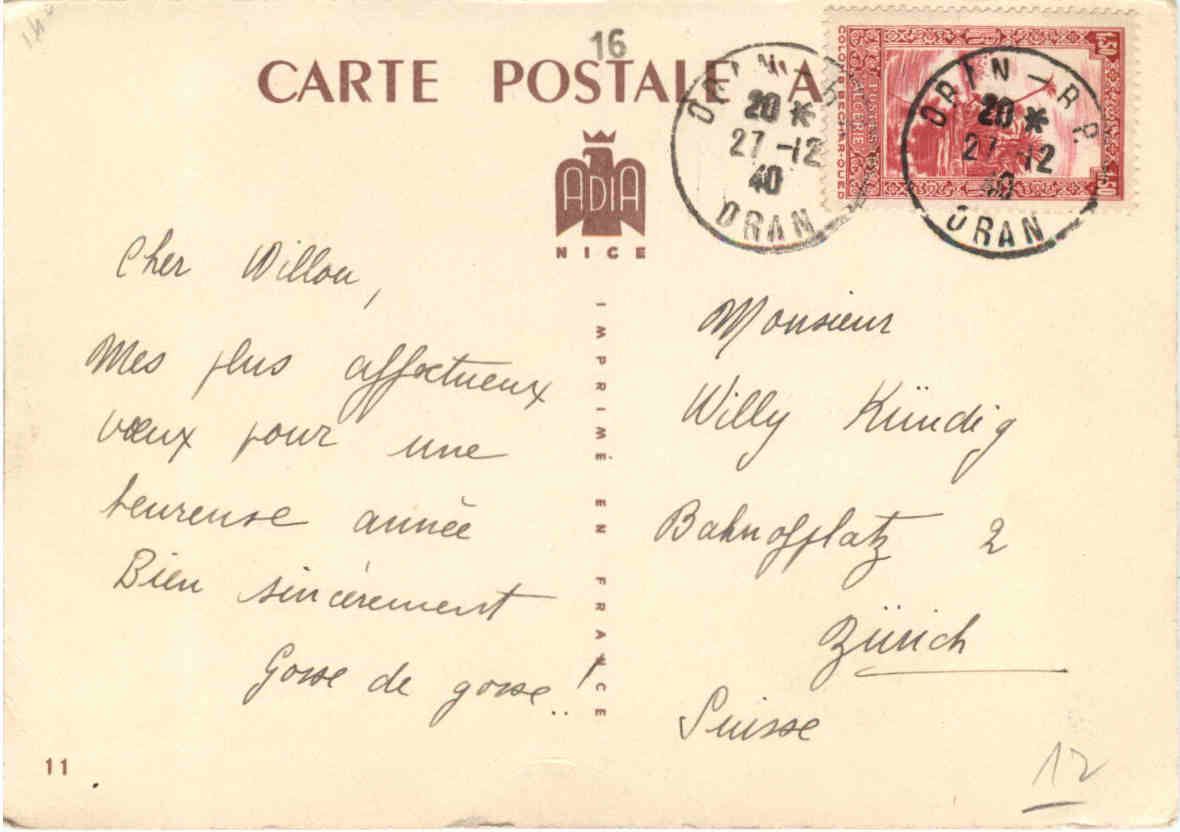 16
CARTE POSTALE A
ORAN-R.P.
20 *
27-12
40
ORAN
ORAN-R.P.
20 *
27-12
40
ORAN
1F50
COLOMB-BECHAR-OUED
POSTES
ALGERIE
1F50
ADIA
NICE
IMPRIMÉ EN FRANCE
Cher Willou,
Mes plus affectueux
vœux pour une
heureuse année
Bien sincèrement
Gosse de gosse..!
Monsieur
Willy Kündig
Bahnofplatz 2
Zürich
Suisse
11
12